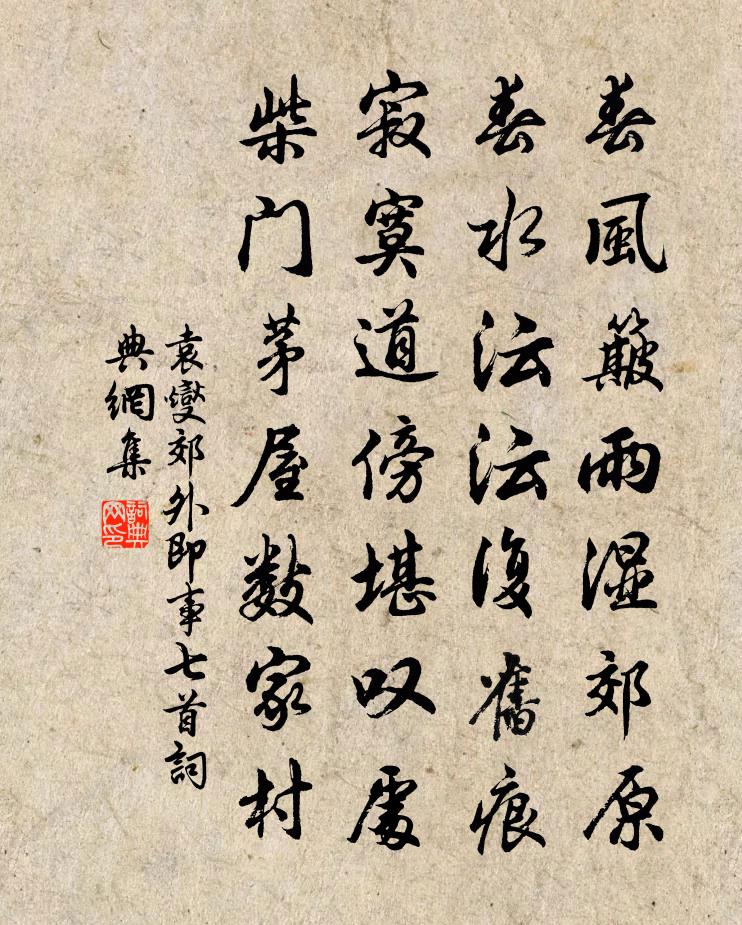 春風簸雨湿郊原
春水沄沄復舊痕
寂寞道傍堪叹處
柴门茅屋数家村
袁燮郊外即事七首詞
典網集
詞典
网印